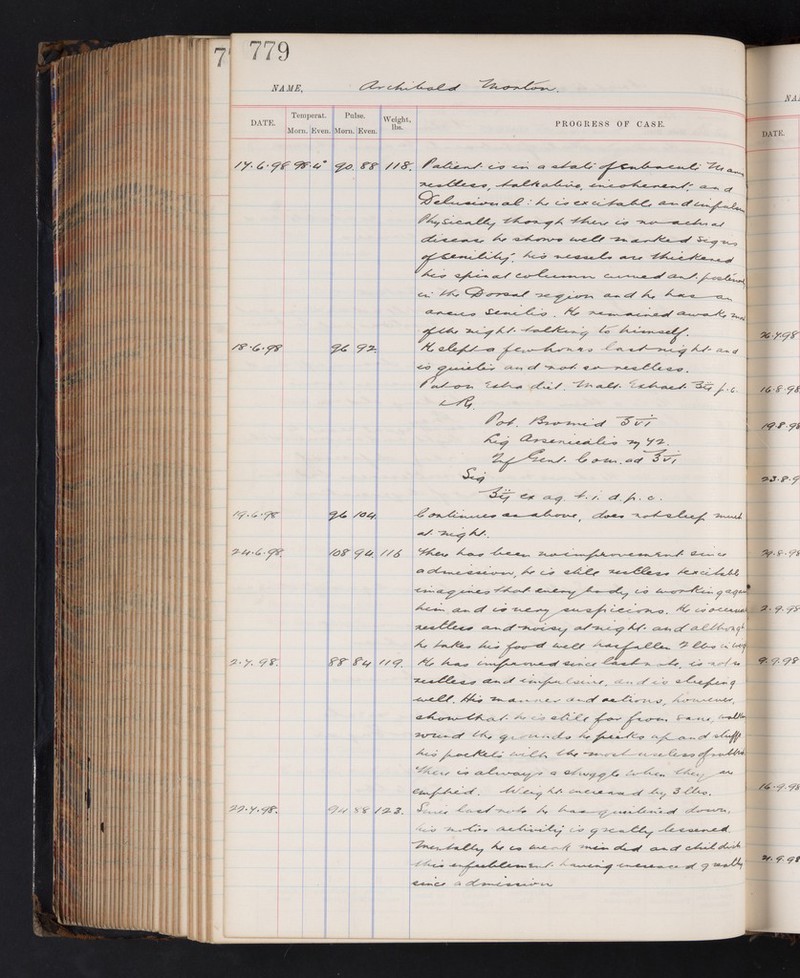 779
NAME, Archibald Morton.
DATE. Temperat. Morn. Even. Pulse. Morn. Even. Weight, lbs. PROGRESS OF CASE.
17.6.98 98.4° 90 88 118. Patient is in a state of subacute Man
restless, talkative, incoherent, and
Delusional: he is excitable and impulsi
Physically though there is no actual
disease he shows well marked signs
of senility, his vessels are thickened
his spinal column curved ant. posterior
in the Dorsal region and he has an
arcus senilis. He remained awake mos
of the night talking to himself.
18.6.98 96 92 He slept a few hours last night and
is quieter and not so restless.
Put on Extra diet. Malt. Extract p.c.
Pot. Bromid
Liq Arsenicalis
Inf Gent. Com. ad
Sig
ex aq. t.i.d. p.c.
19.6.98 96 104 Continues as above, does not sleep much
at night.
24.6.98. 108 94 116 There has been no improvement since
admission, he is still restless excitable
imagines that every body is working again
him and is very suspicious. He is
restless and noisy at night and although
he takes his food well has fallen 2 lbs in
2.7.98. 88 84 119. He has improved since last note, is not so
restless and impulsive, and is sleeping
well. His manner and actions, however,
show that he is still far from sane, walki
round the grounds he picks up and stuffs
his pockets with the most useless of rubbis
There is always a struggle when they are
emptied. Weight increased by 3 lbs.
22.7.98. 94 88 123. Since last note he has quietened down,
his motor activity is greatly lessened
Mentally he is weak minded and childish
this enfeeblement having increased greatly
since admission
NA
DATE.
26.7.98
16.8.98
19.8.98
23.8.9
2.9.98
9.9.98
16.9.98
21.9.98